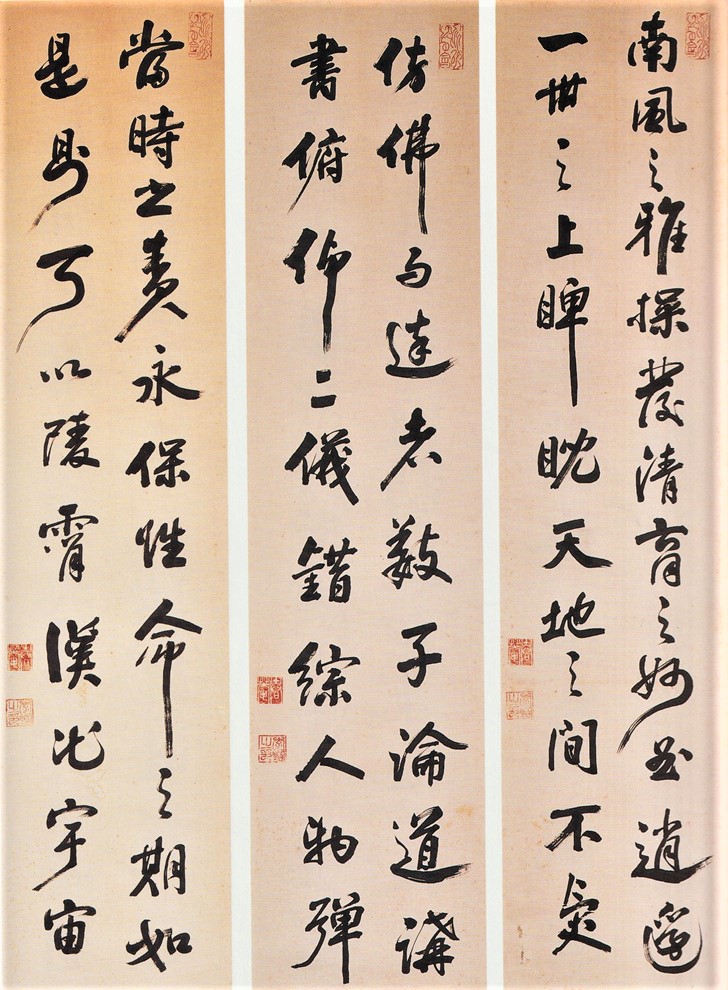 南風之雅操發清商之妙曲逍遙
一世之上睥睨天地之間不受
仿佛与達者數子論道講
書俯仰二儀錯綜人物彈
當時之責永保性命之期如
是則可以陵霄漢出宇宙